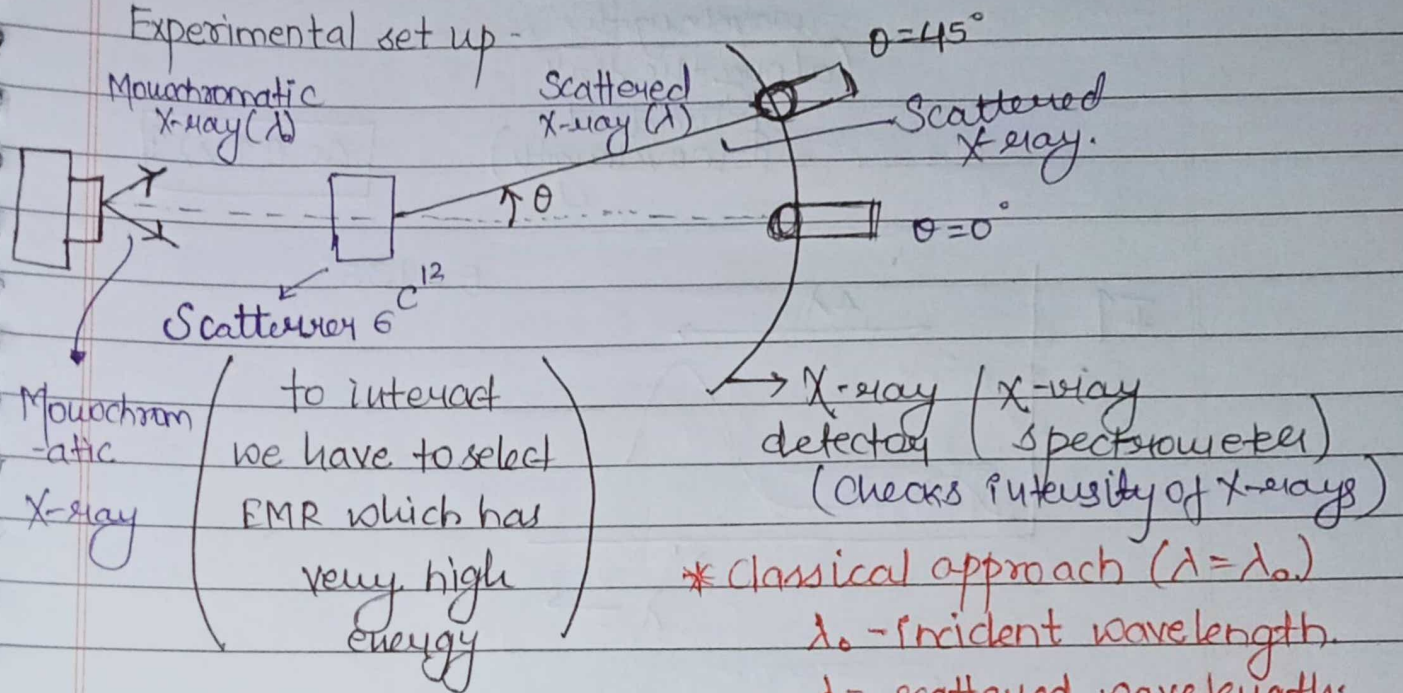 Experimental set up -
θ=45°
Monochromatic
X-ray (λ)
Scattered
X-ray (λ)
Scattered
X-ray.
θ
θ=0°
Scatterrer 6C¹²
Monochrom
-atic
X-ray
to interact
we have to select
EMR which has
very high
energy
→ X-ray
detector
(X-ray
spectrometer)
(checks intensity of X-rays)
* Classical approach (λ=λ₀)
λ₀ - incident wavelength.
λ - scattered wavelengths